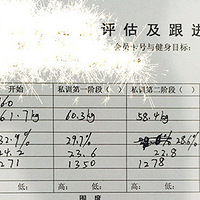 评估及跟进
会员卡号与健身目标:
开始 私训第一阶段( ) 私训第二阶段( )
60
61.7kg 60.3kg 58.4kg
32.9% 29.7% 28.6%
24.2 23.6 22.8
1271 1350 1278
低: 高: 低: 高: 低:
围度